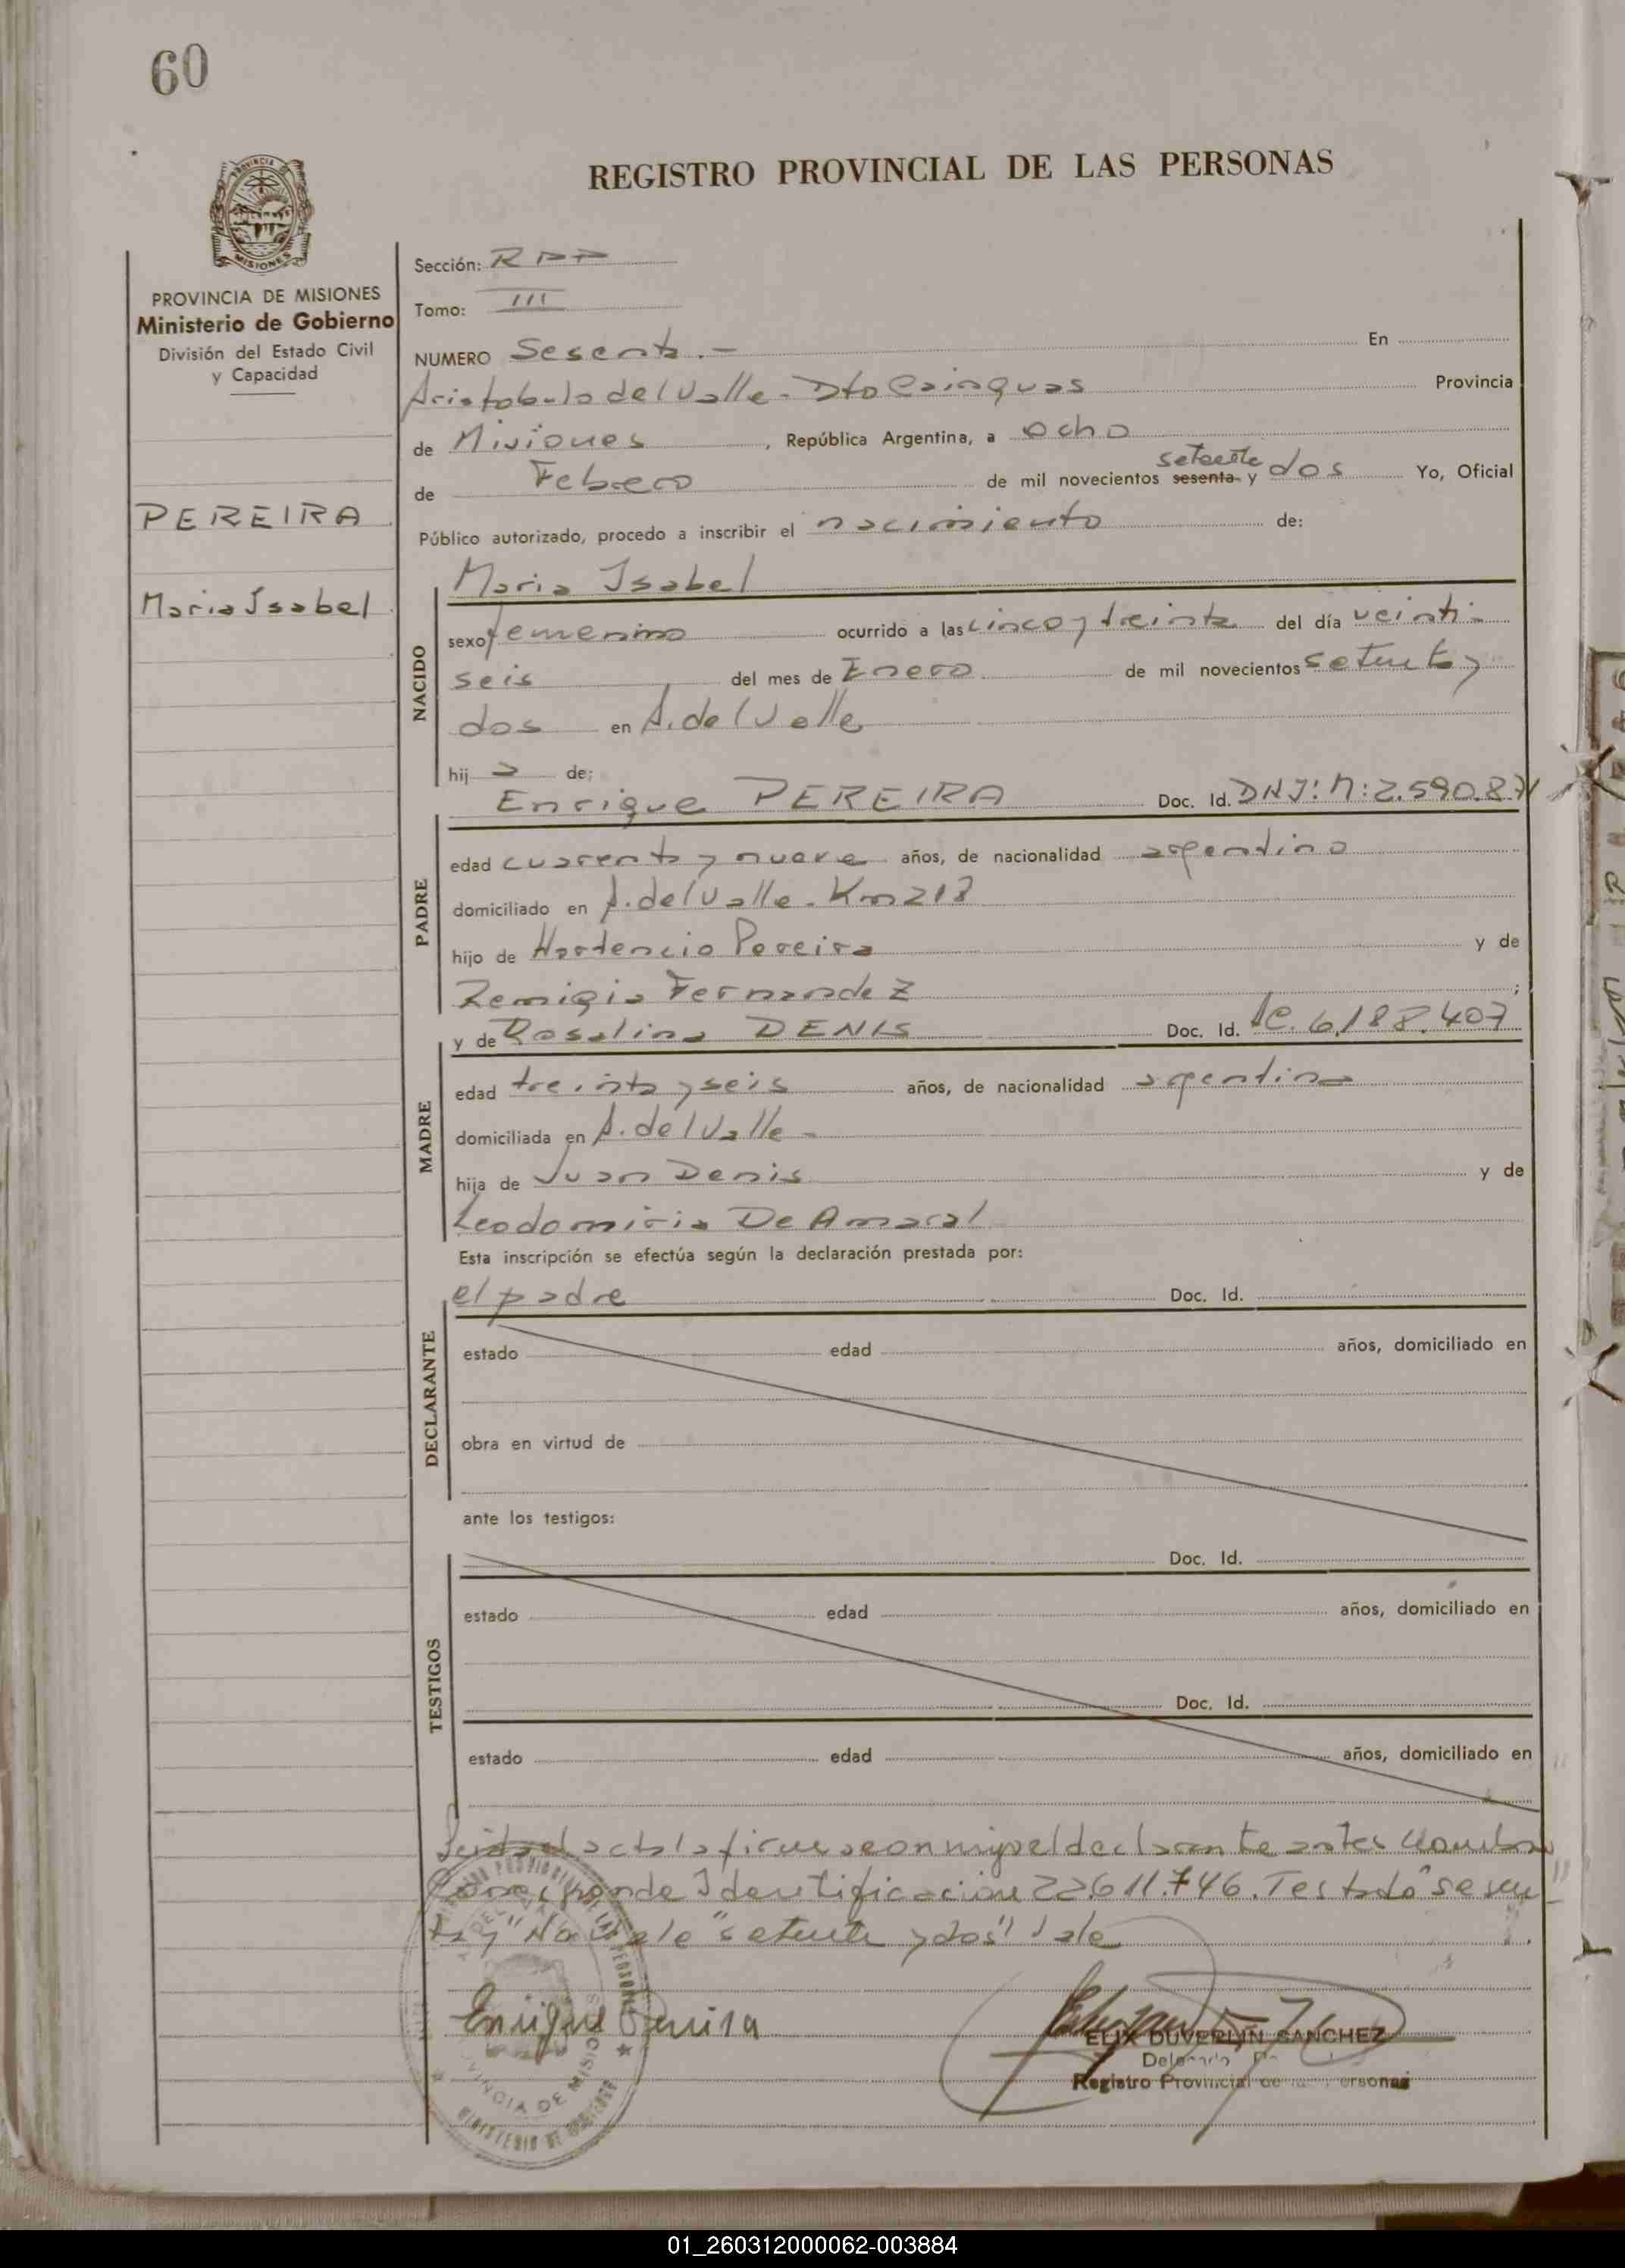 60
REGISTRO PROVINCIAL DE LAS PERSONAS
PROVINCIA DE MISIONES
Ministerio de Gobierno
División del Estado Civil
y Capacidad
PEREIRA
Maria Isabel
Sección: RPP
Tomo: III
NUMERO Sesenta.- En
Aristobulo del Valle - Dto Cainguas Provincia
de Misiones, República Argentina, a ocho
de Febrero de mil novecientos sesenta y setenta dos Yo, Oficial
Público autorizado, procedo a inscribir el nacimiento de:
Maria Isabel
NACIDO
sexo femenino ocurrido a las cinco y treinta del día veinti-
seis del mes de Enero de mil novecientos setenta y
dos en A. del Valle
hija de:
Enrique PEREIRA Doc. Id. DNI: M: 2.590.871
PADRE
edad cuarenta y nueve años, de nacionalidad argentino
domiciliado en A. del Valle - Km 218
hijo de Hortencio Pereira y de
Remigia Fernandez;
y de Rosalina DENIS Doc. Id. LC. 6.188.407
MADRE
edad treinta y seis años, de nacionalidad argentina
domiciliada en A. del Valle -
hija de Juan Denis y de
Leodomiria De Amaral
Esta inscripción se efectúa según la declaración prestada por:
el padre Doc. Id.
DECLARANTE
estado edad años, domiciliado en
obra en virtud de
ante los testigos:
Doc. Id.
TESTIGOS
estado edad años, domiciliado en
Doc. Id.
estado edad años, domiciliado en
Leida el acta la firma conmigo el declarante antes
Corresponde Identificacion 22.611.746. Testado "sesen
ta y" No Vale "setenta y dos" Vale
Enrique Pereira
ELIX DUVERLIN SANCHEZ
Registro Provincial de las Personas
PROVINCIA DE MISIONES
MINISTERIO DE GOBIERNO
01_260312000062-003884